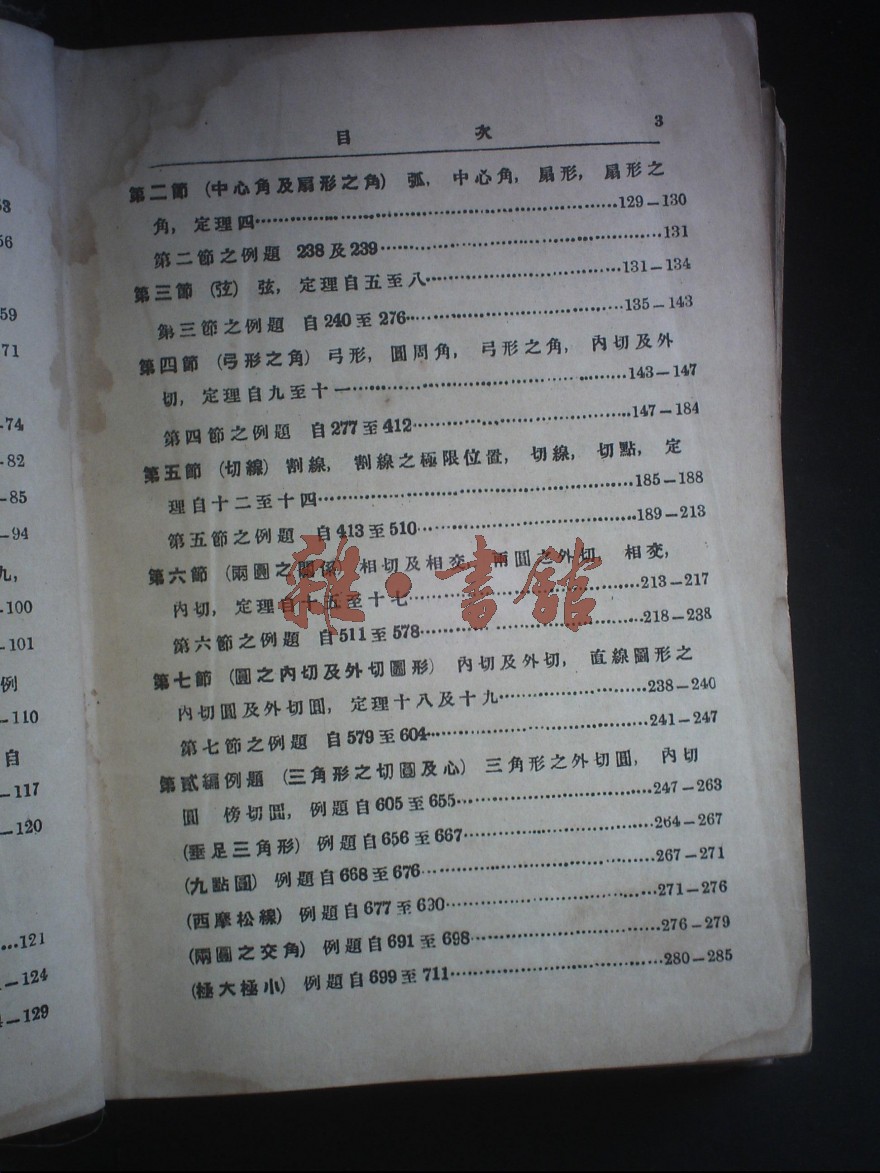 53
56
59
71
-74
-82
-85
-94
九,
-100
-101
例
-110
自
-117
-120
…121
-124
-129
目 次 3
第二節 (中心角及扇形之角) 弧, 中心角, 扇形, 扇形之
角, 定理四…129-130
第二節之例題 238及239…131
第三節 (弦) 弦, 定理自五至八…131-134
第三節之例題 自240至276…135-143
第四節 (弓形之角) 弓形, 圓周角, 弓形之角, 內切及外
切, 定理自九至十一…143-147
第四節之例題 自277至412…147-184
第五節 (切線) 割線, 割線之極限位置, 切線, 切點, 定
理自十二至十四…185-188
第五節之例題 自413至510…189-213
第六節 (兩圓之關係) 相切及相交, 兩圓之外切, 相交,
內切, 定理自十五至十七…213-217
第六節之例題 自511至578…218-238
第七節 (圓之內切及外切圖形) 內切及外切, 直線圖形之
內切圓及外切圓, 定理十八及十九…238-240
第七節之例題 自579至604…241-247
第貳編例題 (三角形之切圓及心) 三角形之外切圓, 內切
圓 傍切圓, 例題自605至655…247-263
(垂足三角形) 例題自656至667…264-267
(九點圓) 例題自668至676…267-271
(西摩松線) 例題自677至690…271-276
(兩圓之交角) 例題自691至698…276-279
(極大極小) 例題自699至711…280-285
雜·書館